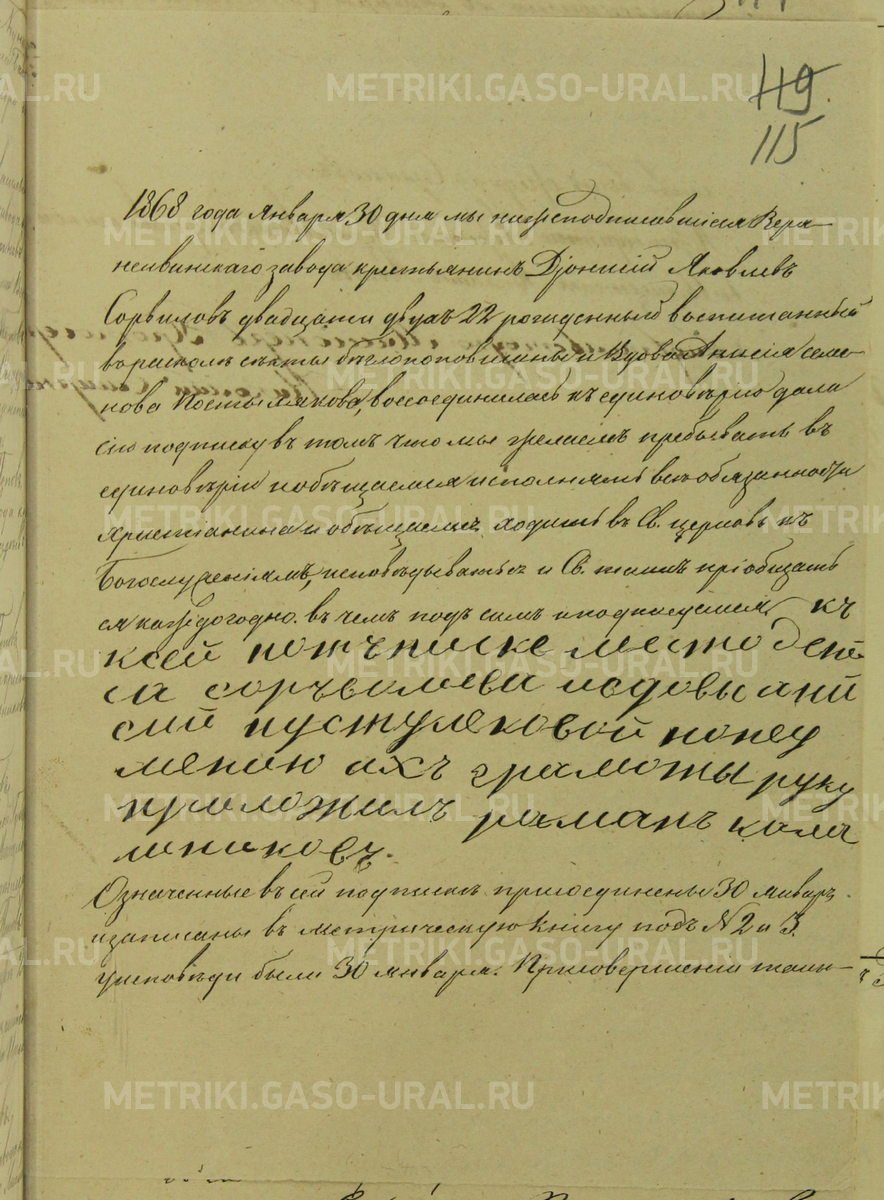 119.
115
1868 года Января 30 дня мы нижеподписавшіися Верх
нейвинскаго завода крестьянинъ Дiонисiй Яковлевъ
Сорвиловъ двадцати двухъ 22 рожденный воспитанный
въ расколѣ секты бѣглопоповщины и Вдова Анисiя Семе-
нова Постылякова, воссоединилась къ единовѣрiю дала
сiю подписку въ томъ что мы желаемъ пребывать въ
единовѣрiи и обѣщаемся исполнять всѣ обязанности
христiанина и обѣщаемся ходить въ Св. церковь къ
Богослуженiямъ, исповѣдыватьсь и Св. таинъ прiобщать
ся каждогодно. въ чемъ подъ симъ и подписуемся къ
ксей потъписке место дени
са соръвилева исдовы ани
сий пустуляковой понеу
мению ихъ грамоты руку
приложилъ раманъ кала
шниковъ.
Означенные въ сей подпискѣ присоединены 30 январь
и записаны въ метрическую книгу подъ N 2 и 3.
уисповѣди были 30 января. При совершенiи таин-
METRIKI.GASO-URAL.RU